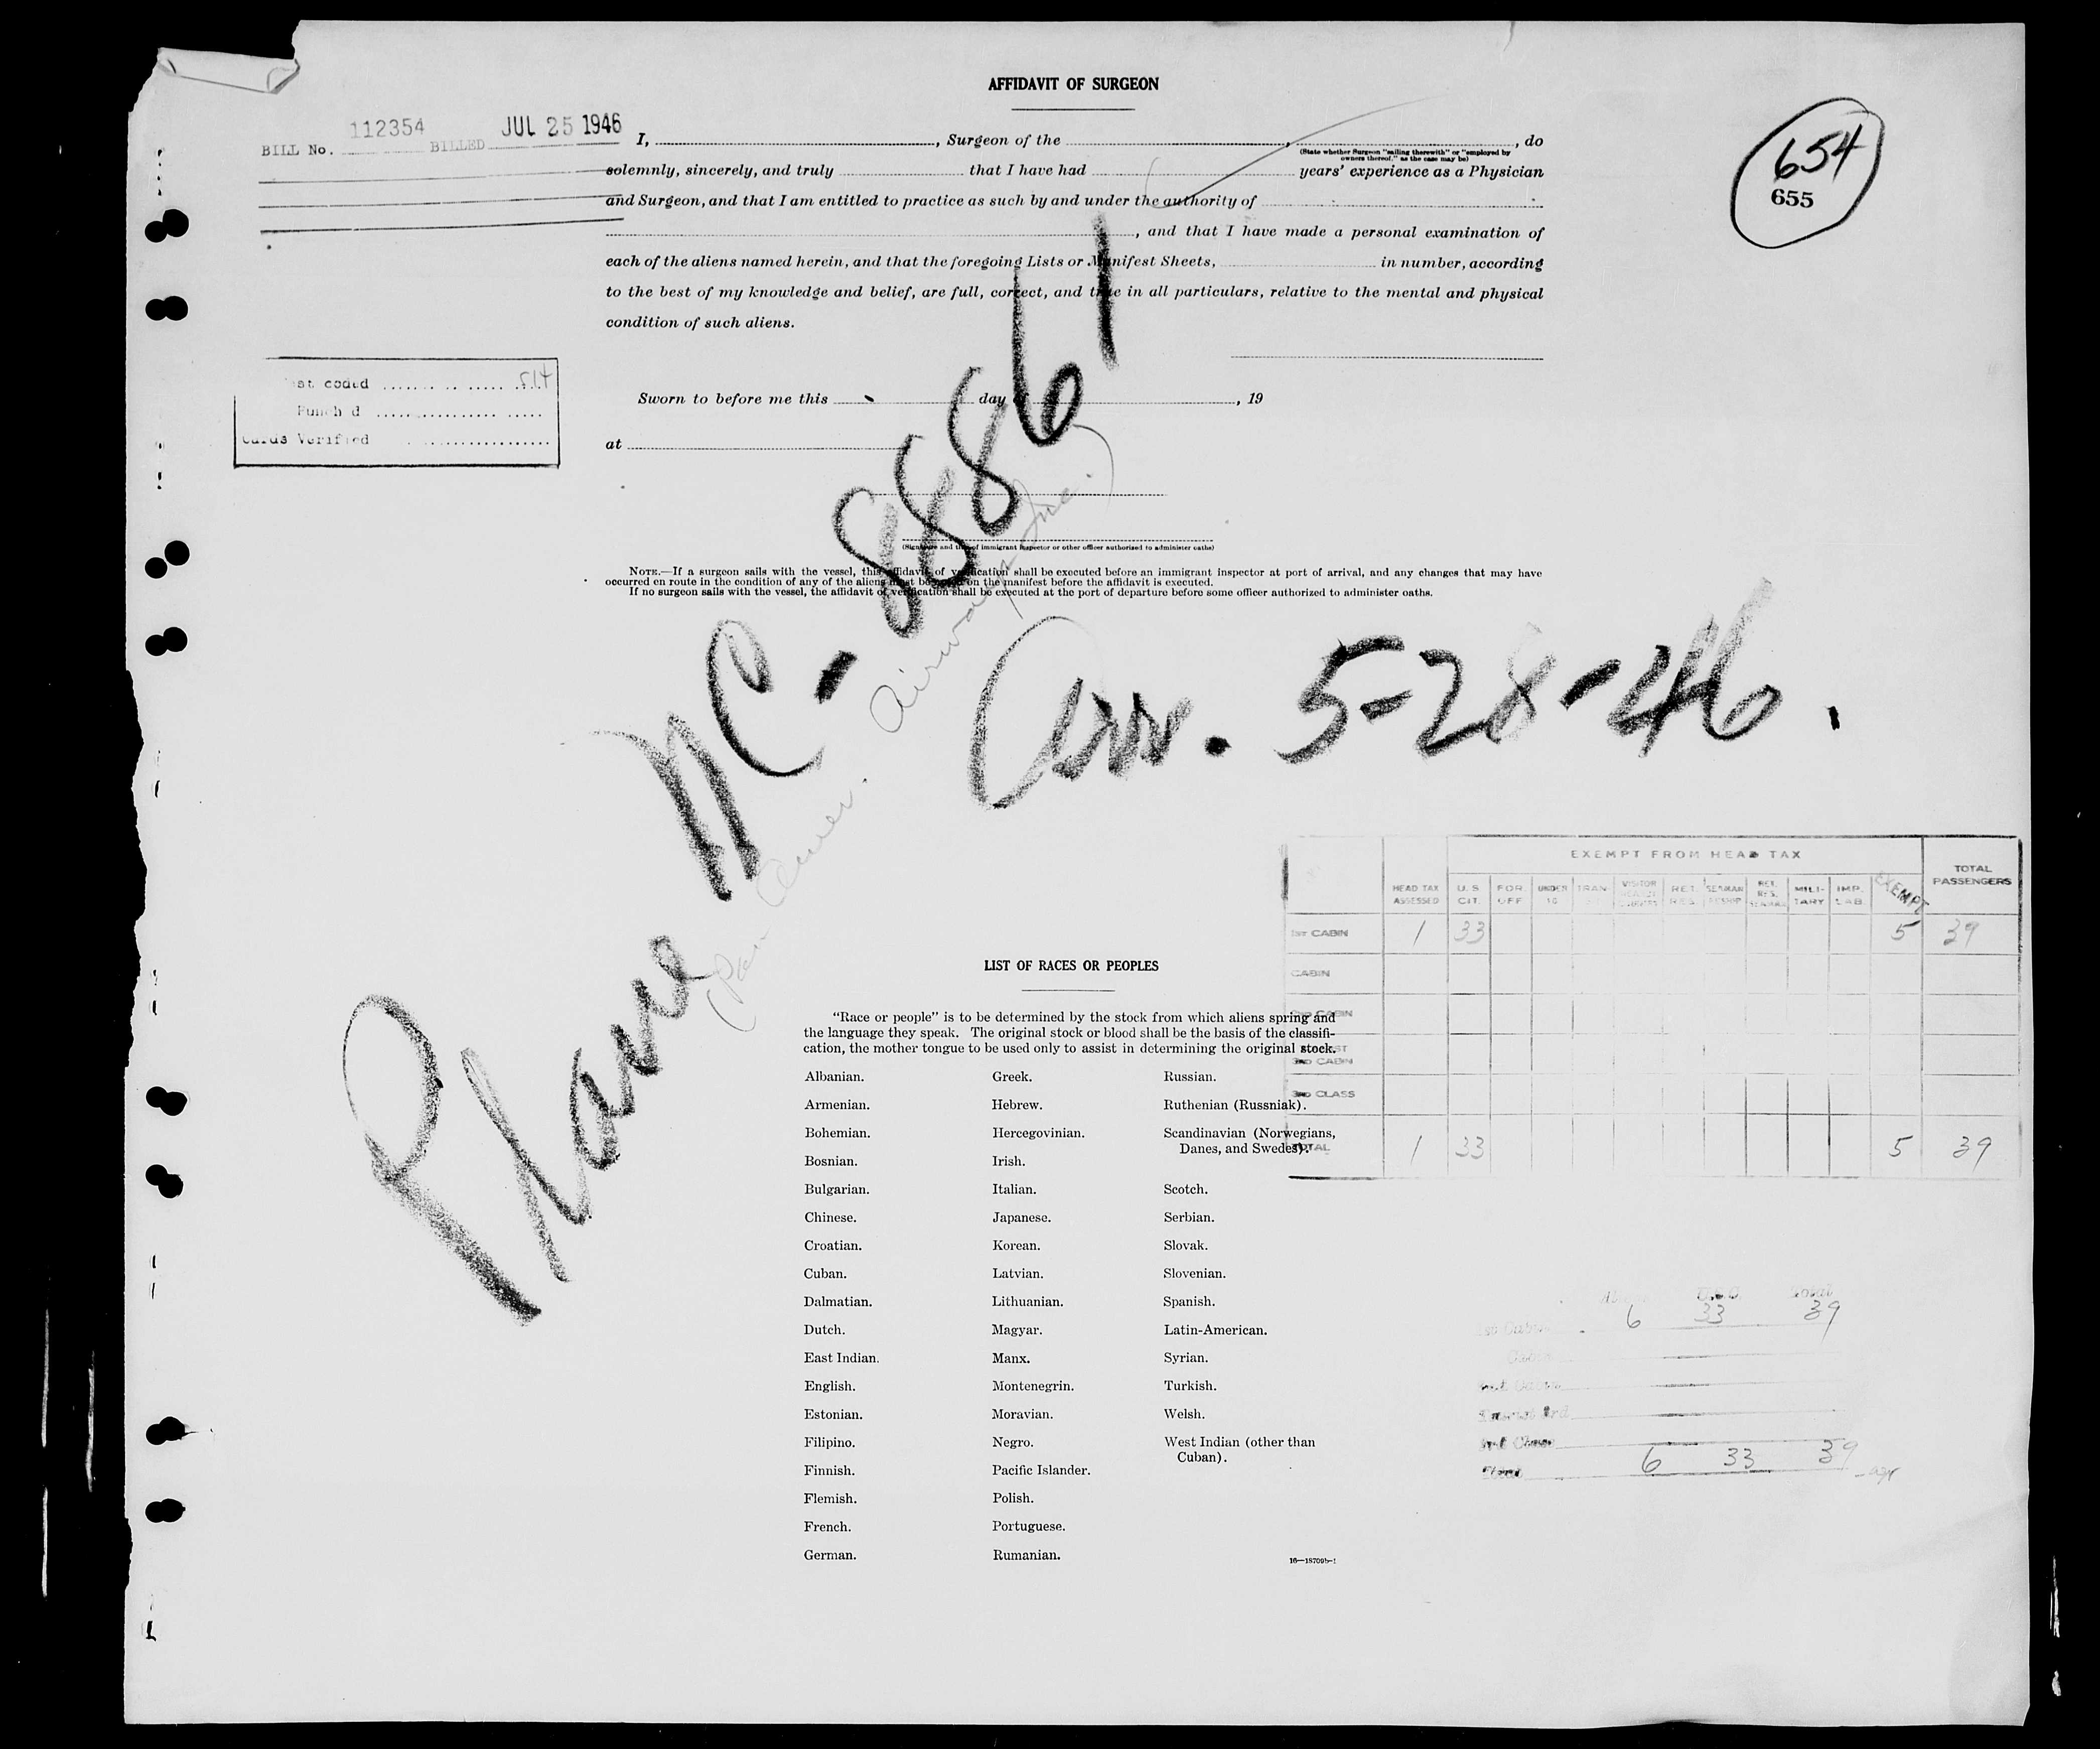 AFFIDAVIT OF SURGEON
BILL No. 112354 BILLED JUL 25 1946
654
655
I, , Surgeon of the , , do
(State whether Surgeon "sailing therewith" or "employed by owners thereof," as the case may be)
solemnly, sincerely, and truly that I have had years' experience as a Physician
and Surgeon, and that I am entitled to practice as such by and under the authority of
, and that I have made a personal examination of
each of the aliens named herein, and that the foregoing Lists or Manifest Sheets, in number, according
to the best of my knowledge and belief, are full, correct, and true in all particulars, relative to the mental and physical
condition of such aliens.
coded
Punch d
Cards Verified
Sworn to before me this day , 19
at
(Signature and title of immigrant inspector or other officer authorized to administer oaths)
NOTE.—If a surgeon sails with the vessel, this affidavit of verification shall be executed before an immigrant inspector at port of arrival, and any changes that may have
occurred en route in the condition of any of the aliens must be on the manifest before the affidavit is executed.
If no surgeon sails with the vessel, the affidavit of verification shall be executed at the port of departure before some officer authorized to administer oaths.
Plane NC-88861
(Pan Amer. Airways Inc.)
Arr. 5-28-46.
EXEMPT FROM HEAD TAX
HEAD TAX ASSESSED U.S. CIT. FOR OFF UNDER 16 TRAN- VISITOR RET. RES. SEAMAN RET. RES. MILI-TARY IMP. LAB. EXEMPT TOTAL PASSENGERS
1ST CABIN 1 33 5 39
CABIN
2ND CABIN
3RD CABIN
3RD CLASS
TOTAL 1 33 5 39
LIST OF RACES OR PEOPLES
"Race or people" is to be determined by the stock from which aliens spring and
the language they speak. The original stock or blood shall be the basis of the classifi-
cation, the mother tongue to be used only to assist in determining the original stock.
Albanian. Greek. Russian.
Armenian. Hebrew. Ruthenian (Russniak).
Bohemian. Hercegovinian. Scandinavian (Norwegians,
Danes, and Swedes).
Bosnian. Irish.
Bulgarian. Italian. Scotch.
Chinese. Japanese. Serbian.
Croatian. Korean. Slovak.
Cuban. Latvian. Slovenian.
Dalmatian. Lithuanian. Spanish.
Dutch. Magyar. Latin-American.
East Indian. Manx. Syrian.
English. Montenegrin. Turkish.
Estonian. Moravian. Welsh.
Filipino. Negro. West Indian (other than
Cuban).
Finnish. Pacific Islander.
Flemish. Polish.
French. Portuguese.
German. Rumanian.
16—18709b-1
U.S.C. Total
6 33 39
Total 6 33 39